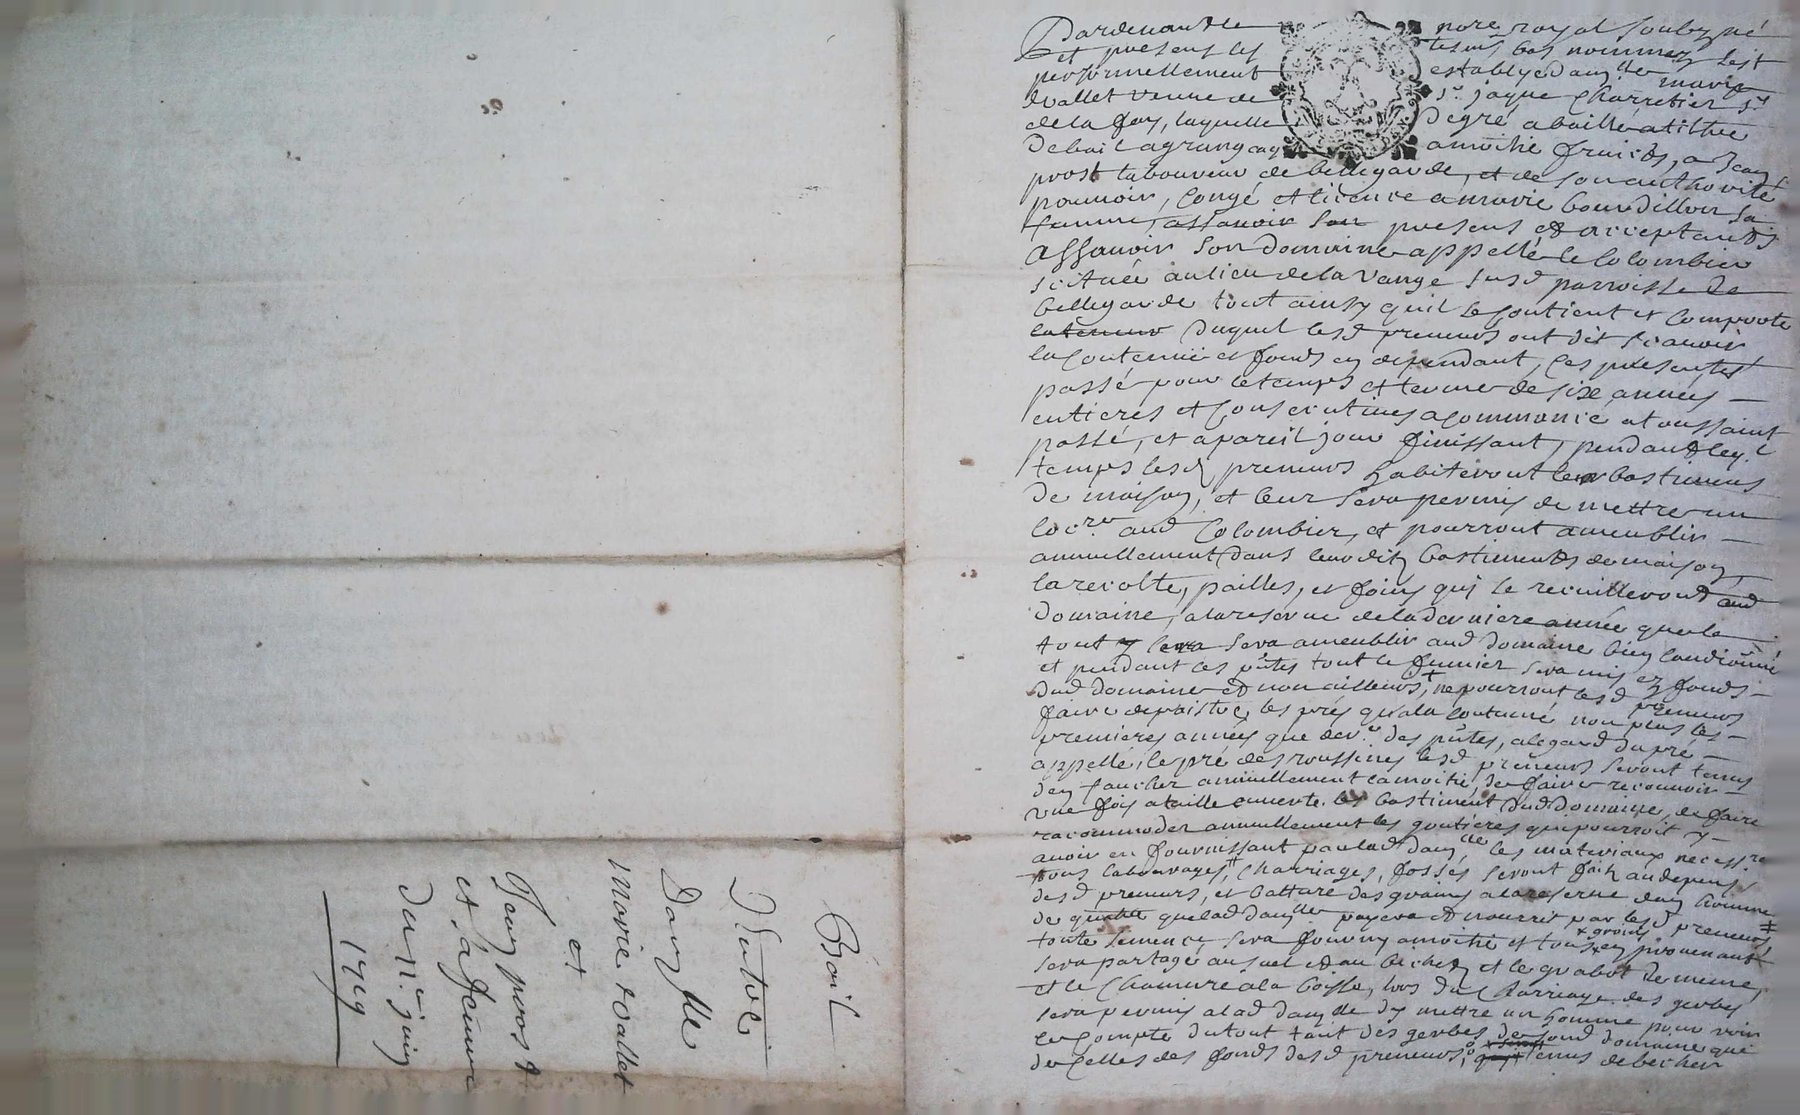 Bail
Entre
Dam.lle
marie vallet
et
Jean prost
et sa femme
du 11.e juin
1719
Pardevant le nore. royal soubzné
et presens les tesmś bas nommez s'est
personnellement establye dam.lle marie
vallet veuve de Sr. jaque Charretier Sr
de la fay, laquelle degré a baillé a tiltre
de bail a grangeag a moitié fruicts, a Jean
prost laboureur de bellegarde, et de son authorité
pouvoir, congé et licence a marie bourdillon sa
femme, assavoir son presens et acceptants
Assavoir son domaine appellé le Colombier
scituée au lieu de la vange susd parroisse de
bellegarde tout ainsy quil se contient et comporte
duquel lesd preneurs ont dit scavoir
la contenue et fonds en dependant, ces presentes
passé pour le temps et terme de six années
entieres et consecutives a commancé a toussaint
passé, et a pareil jour finissant, pendant leql
temps lesd preneurs habiteront les bastimens
de maison, et leur sera permis de mettre un
aud Colombier, et pourront ameublir
annuellement dans bastiments de maison
la recolte, pailles, et foins qui se recuilleront aud
domaine, a la reserve de la derniere année que le
tout sera ameublir aud domaine bien conditionné
et pendant ces pntes tout le fumier sera mis ez fonds
dud domaine et non ailleurs, ne pourront lesd preneurs
faire depaistre les prés qu'a la coutume non plus les
premieres années que der.e des pntes, a legard du pré
appellé le pré des roussines lesd preneurs seront tenus
den faucher annuellement la moitié, de faire recouvrir
une fois a taille ouverte les bastiment dud domaine, de faire
racommoder annuellement les goutieres qui pourroit y
avoir en fournissant par lad dam.lle les materiaux necessre
tous labourages, charriages, fossés seront fait au depens
desd preneurs, et battare des grains a la reserve dun homme
de que lad dam.lle payera et nourrit par lesd preneurs
toute semence sera fourny a moitié et tous grains en provenant
sera partagé au suel et au bichet, et le grabot de meme,
et le chanvre a la boisse, lors du charriage des gerbes
sera permis a lad dam.lle dy mettre un homme pour voir
le compte du tout tant des gerbes de fond domaine que
de celles des fonds desd preneurs, tenus de becher